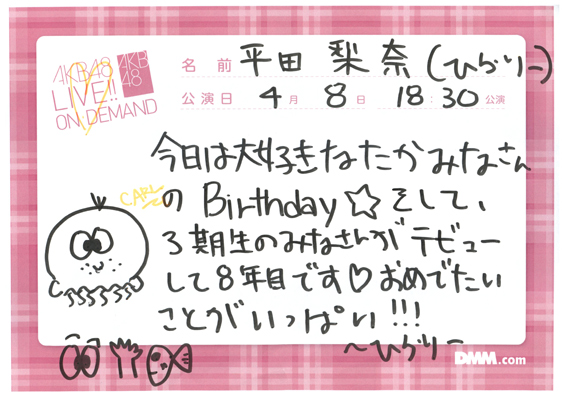 AKB48
LIVE!!
ON DEMAND
AKB
48
名前 平田 梨奈 (ひらりー)
公演日 4月 8日 18:30公演
今日は大好きなたかみなさん
CARL
の Birthday☆そして、
3期生のみなさんがデビュー
して8年目です♡おめでたい
ことがいっぱい!!!
〜ひらりー
DMM.com